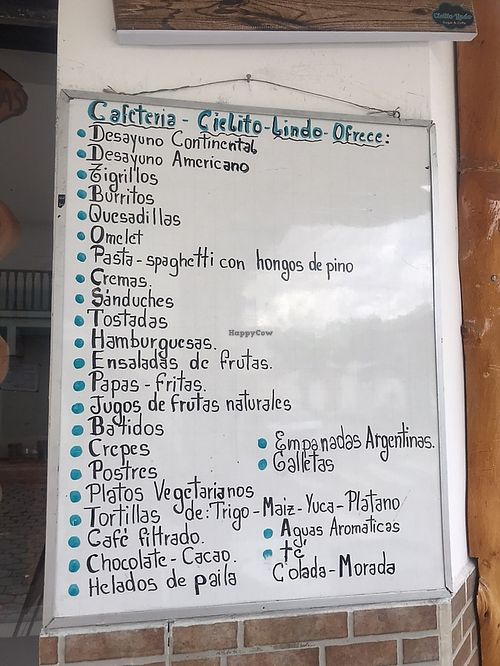 Cielito Lindo
Cafeteria - Cielito-Lindo-Ofrece:
Desayuno Continental
Desayuno Americano
Tigrillos
Burritos
Quesadillas
Omelet
Pasta-spaghetti con hongos de pino
Cremas.
Sánduches
Tostadas
Hamburguesas.
Ensaladas de frutas.
Papas-fritas.
Jugos de frutas naturales
Batidos
Crepes
Postres
Platos Vegetarianos
Tortillas de: Trigo-Maiz-Yuca-Platano
Café filtrado.
Chocolate-Cacao.
Helados de paila
Empanadas Argentinas.
Galletas
Aguas Aromaticas
té
Colada-Morada
HappyCow